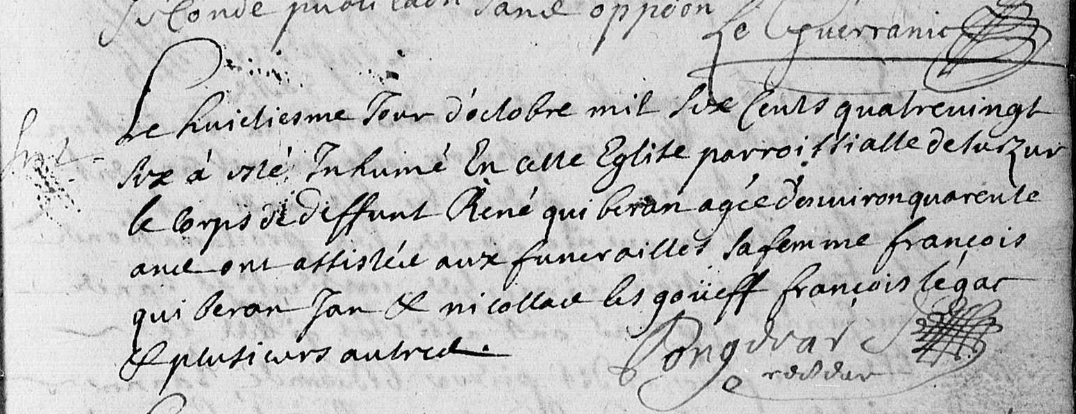 seconde publication sans oppoon
Le Guerranic
Le huictiesme Jour d'octobre mil six Cents quatreuingt
six à esté Inhumé En cette Eglise parroissialle de surzur
le Corps de deffunt René quiberan agée d'enuiron quarente
ans ont assistée aux funerailles sa femme françois
quiberan Jan & nicollas les goüeff françois legac
& plusieurs autres.
recteur